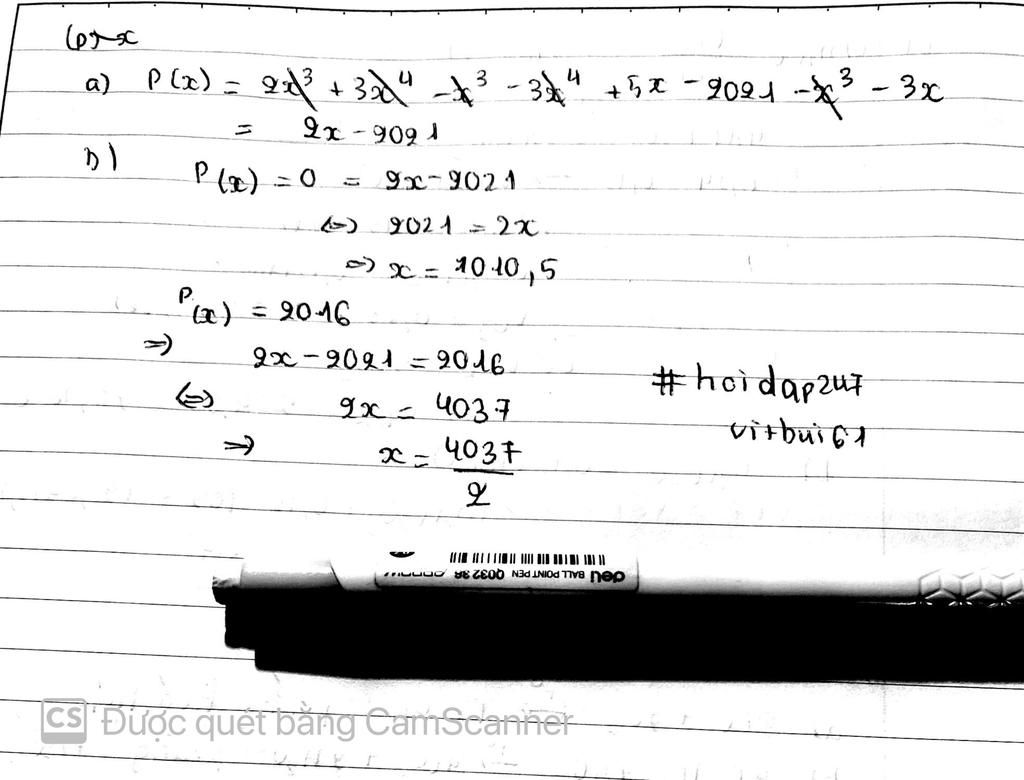 a) P(x) = 2x³ + 3x⁴ - x³ - 3x⁴ + 5x - 2021 - x³ - 3x
= 2x - 2021
b)
P(x) = 0 = 2x - 2021
<=> 2021 = 2x
=> x = 1010,5
P(x) = 2016
=> 2x - 2021 = 2016
<=> 2x = 4037
=> x = 4037/2
#hoidap247
vitbui61
deli BALL POINT PEN Q032
CS Được quét bằng CamScanner